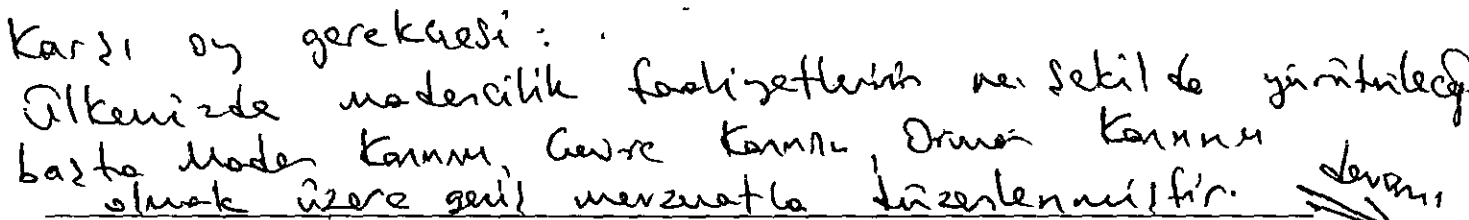 Karşı oy gerekçesi:
Ülkemizde madencilik faaliyetlerinin ne şekilde yürütüleceği
başta Maden Kanunu, Çevre Kanunu, Orman Kanunu
olmak üzere geniş mevzuatla düzenlenmiştir. devamı